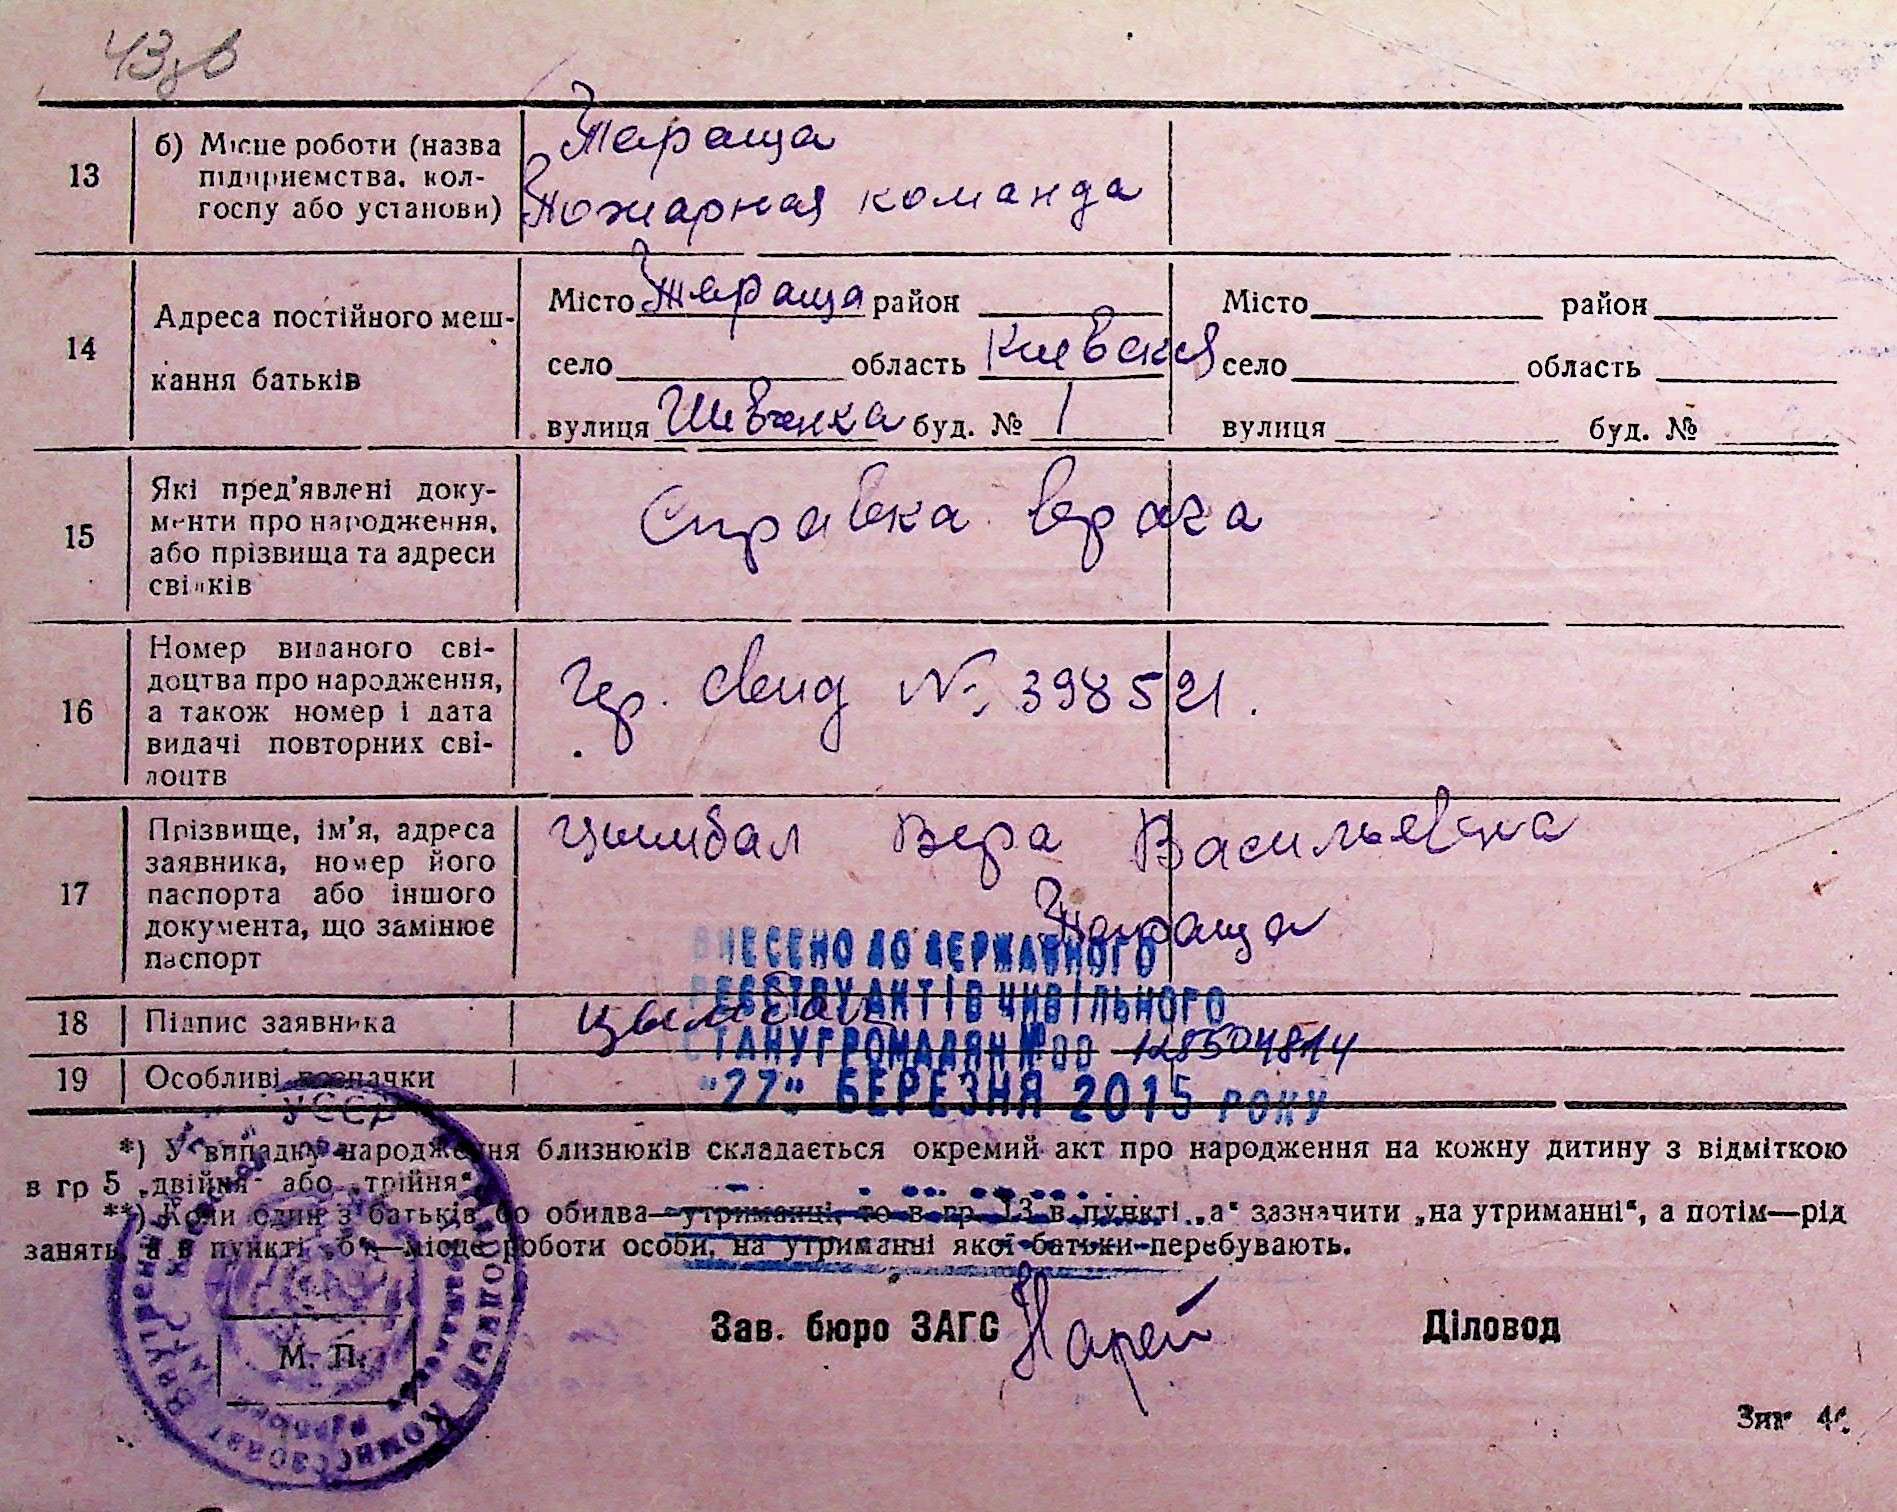 43зв
13
б) Місце роботи (назва
підприємства, кол-
госпу або установи)
Тараща
Пожарная команда
14
Адреса постійного меш-
кання батьків
Місто Тараща район
село область Киевская
вулиця Шевченка буд. № 1
Місто район
село область
вулиця буд. №
15
Які пред'явлені доку-
менти про народження,
або прізвища та адреси
свідків
Справка врача
16
Номер виданого сві-
доцтва про народження,
а також номер і дата
видачі повторних сві-
доцтв
Гер. свид № 398521.
17
Прізвище, ім'я, адреса
заявника, номер його
паспорта або іншого
документа, що замінює
паспорт
Цимбал Вера Васильевна
Тараща
18
Підпис заявника
Цымбал
19
Особливі позначки
ВНЕСЕНО ДО ДЕРЖАВНОГО
РЕЄСТРУ АКТІВ ЦИВІЛЬНОГО
СТАНУ ГРОМАДЯН №00 128504814
"27" БЕРЕЗНЯ 2015 РОКУ
*) У випадку народження близнюків складається окремий акт про народження на кожну дитину з відміткою
в гр 5 „двійня" або „трійня".
**) Коли один з батьків бо обидва—утриманці, то в гр. 13 в пункті „а" зазначити „на утриманні", а потім—рід
занять, а в пункті „б"—місце роботи особи, на утриманні якої батьки перебувають.
УССР
Народный Комиссариат Внутренних
М. П.
Зав. бюро ЗАГС
Діловод